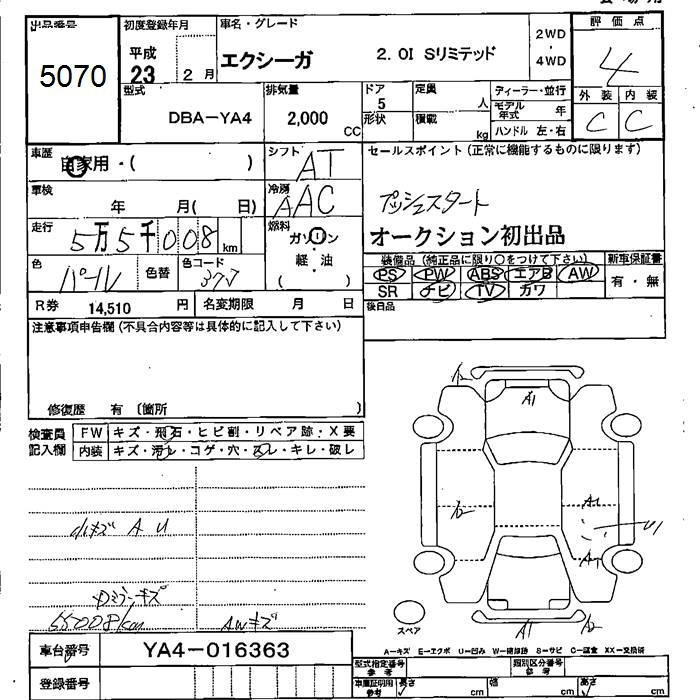 出品番号
5070
初度登録年月
平成
23 2 月
車名・グレード
エクシーガ 2.0I Sリミテッド
2WD
・
4WD
評価点
4
型式
DBA-YA4
排気量
2,000 CC
ドア
5
形状
定員
人
積載
kg
ディーラー・並行
モデル年式 年
ハンドル 左・右
外装 内装
C C
車歴
自家用・( )
シフト
AT
車検
年 月( 日)
冷房
AAC
走行
5万5千008 km
燃料
ガソリン
軽・油
( )
色
パール
色替
色コード
37J
R券 14,510 円
名変期限 月 日
セールスポイント(正常に機能するものに限ります)
プッシュスタート
オークション初出品
装備品(純正品に限り○をつけて下さい)
新車保証書
PS PW ABS エアB AW
SR ナビ TV カワ
有・無
後日品
注意事項申告欄(不具合内容等は具体的に記入して下さい)
修復歴 有 (箇所 )
検査員
記入欄
FW キズ・飛石・ヒビ割・リペア跡・X要
内装 キズ・汚レ・コゲ・穴・スレ・キレ・破レ
小キズ A U
Dミラーキズ
55008km
AWキズ
A2
A1
A2
A1
U1
A1
A1
A2
スペア
A-キズ E-エクボ U-凹み W-補修跡 S-サビ C-腐食 XX-交換済
車台番号 YA4-016363
登録番号
型式指定番号
参考
類別区分番号
参考
車庫証明用
参考
長さ cm
幅 cm
高さ cm